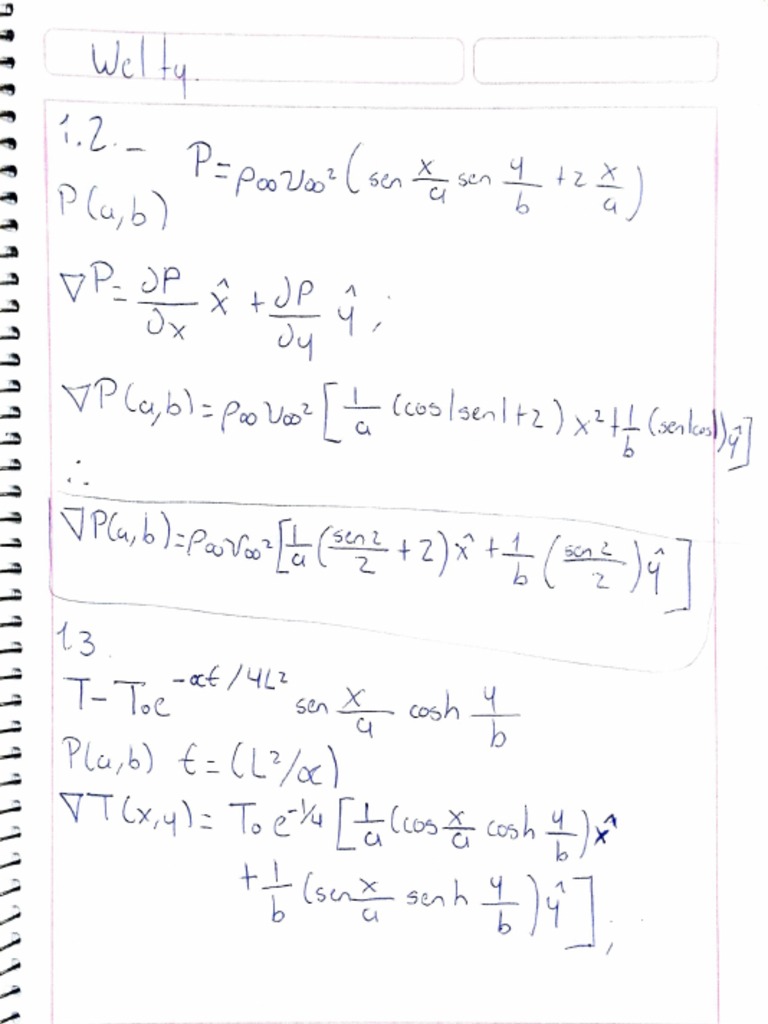 Welty.
1.2.- P = ρ∞ v∞² (sen x/a sen y/b + 2 x/a)
P(a,b)
∇P = ∂P/∂x x̂ + ∂P/∂y ŷ ;
∇P(a,b) = ρ∞ v∞² [1/a (cos1sen1+2) x² + 1/b (sen1cos1) ŷ]
∴
∇P(a,b) = ρ∞ v∞² [1/a (sen2/2 + 2) x̂ + 1/b (sen2/2) ŷ]
1.3
T - T₀e^(-αt/4L²) sen x/a cosh y/b
P(a,b) t = (L²/α)
∇T(x,y) = T₀ e^(-1/4) [1/a (cos x/a cosh y/b) x̂
+ 1/b (sen x/a senh y/b) ŷ] ;